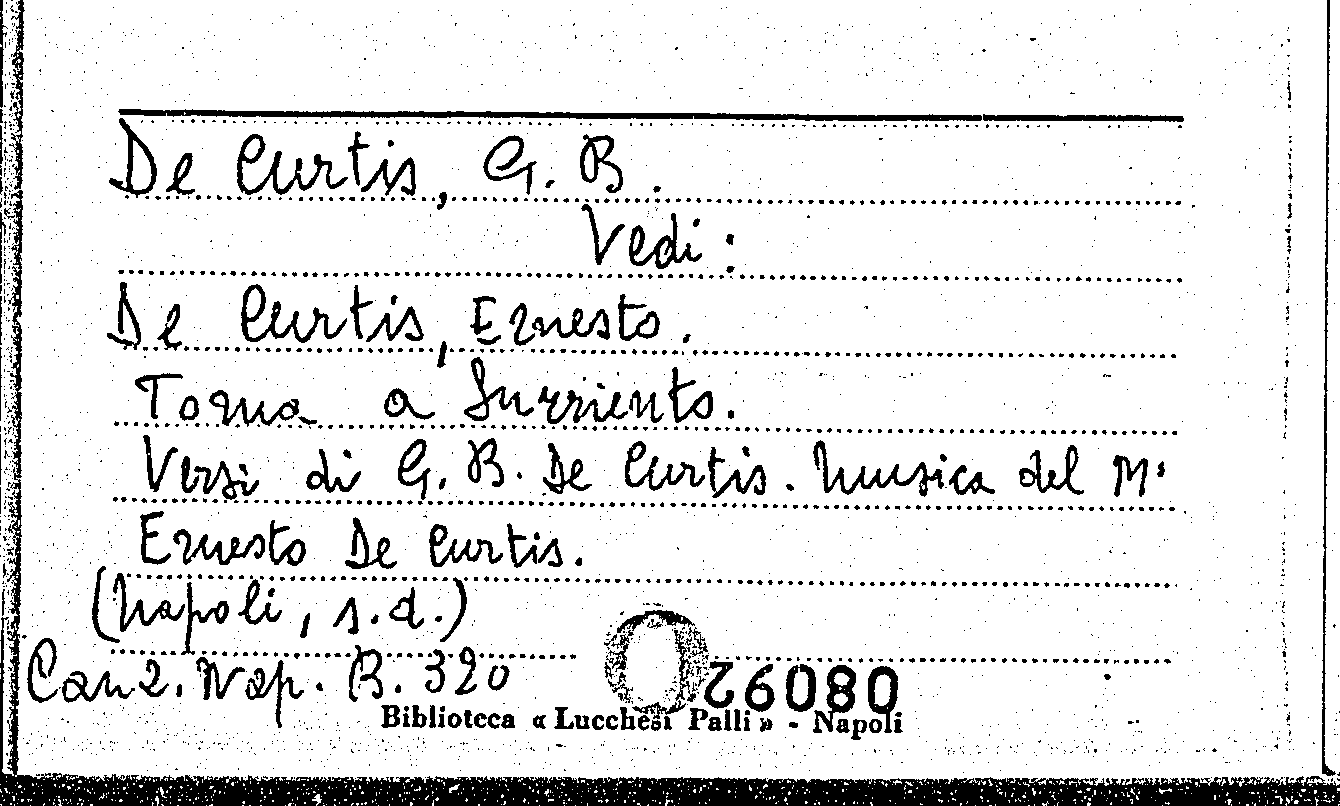 De Curtis, G. B.
Vedi:
De Curtis, Ernesto.
Torna a Surriento.
Versi di G. B. De Curtis. Musica del M°
Ernesto De Curtis.
(Napoli, s.d.)
Canz. Nap. B. 320
Biblioteca « Lucchesi Palli » - Napoli